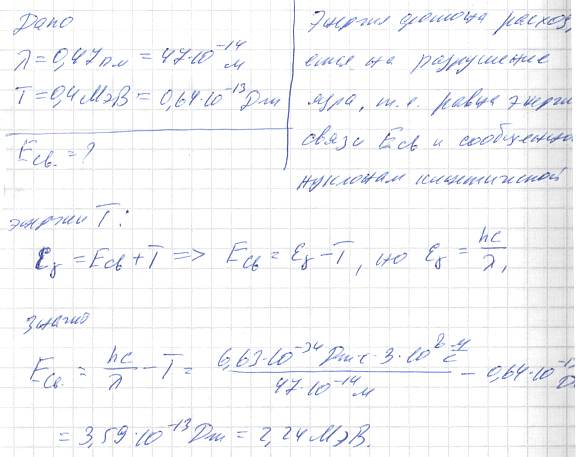 Дано
λ = 0,47 пм = 47·10⁻¹⁴ м
T = 0,4 МэВ = 0,64·10⁻¹³ Дж
Eсв. = ?
Энергия фотона расход
ется на разрушение
ядра, т.е. равна энерги
связи Eсв и сообщенно
нуклонам кинетической
энергии T:
εγ = Eсв + T => Eсв = εγ − T, но εγ = hc/λ,
значит
Eсв. = hc/λ − T = 6,63·10⁻³⁴ Дж·с · 3·10⁸ м/с / 47·10⁻¹⁴ м − 0,64·10⁻¹³ Д
= 3,59·10⁻¹³ Дж = 2,24 МэВ.